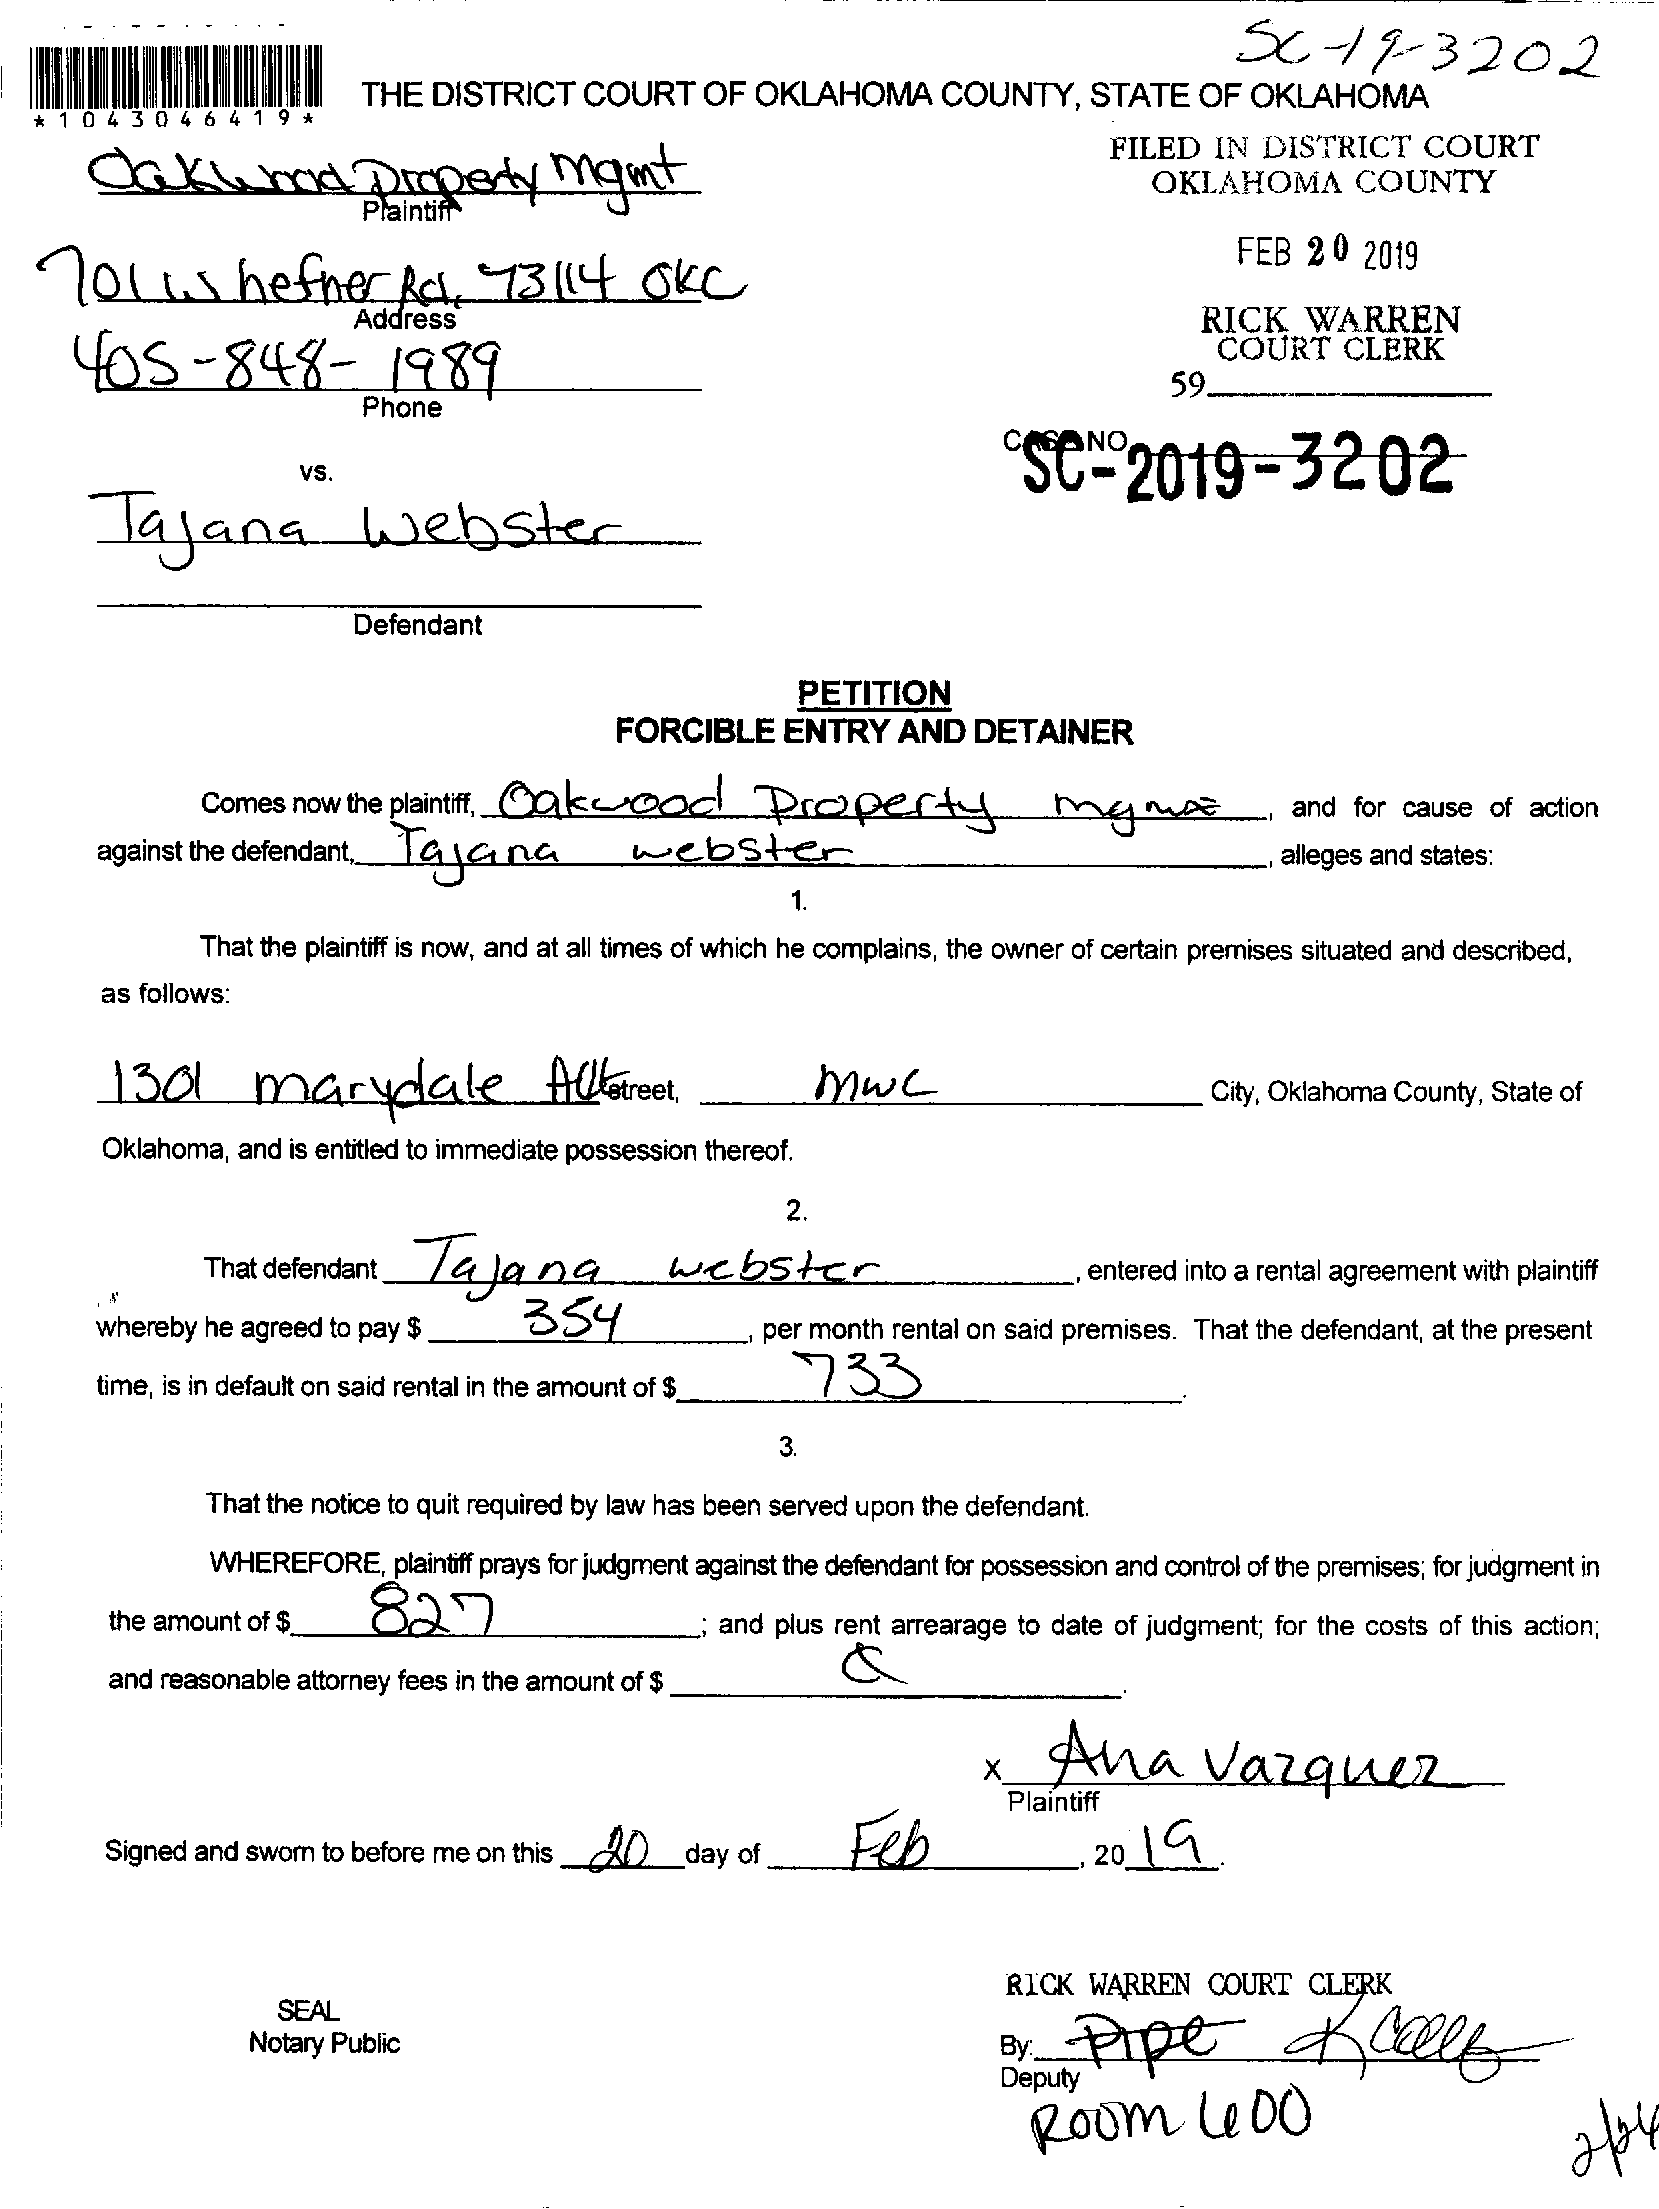 SC-19-3202
*1043046419*
THE DISTRICT COURT OF OKLAHOMA COUNTY, STATE OF OKLAHOMA
Oakwood Property Mgmt
Plaintiff
FILED IN DISTRICT COURT
OKLAHOMA COUNTY
701 W hefner Rd, 73114 OKC
Address
FEB 20 2019
405-848-1989
Phone
RICK WARREN
COURT CLERK
59
CASE NO
SC-2019-3202
vs.
Tajana Webster
Defendant
PETITION
FORCIBLE ENTRY AND DETAINER
Comes now the plaintiff, Oakwood Property mgmt, and for cause of action
against the defendant, Tajana webster, alleges and states:
1.
That the plaintiff is now, and at all times of which he complains, the owner of certain premises situated and described,
as follows:
1301 marydale street, MWC City, Oklahoma County, State of
Oklahoma, and is entitled to immediate possession thereof.
2.
That defendant Tajana webster, entered into a rental agreement with plaintiff
whereby he agreed to pay $ 354, per month rental on said premises. That the defendant, at the present
time, is in default on said rental in the amount of $ 733.
3.
That the notice to quit required by law has been served upon the defendant.
WHEREFORE, plaintiff prays for judgment against the defendant for possession and control of the premises; for judgment in
the amount of $ 827; and plus rent arrearage to date of judgment; for the costs of this action;
and reasonable attorney fees in the amount of $.
x Ana Vazquez
Plaintiff
Signed and sworn to before me on this 20 day of Feb, 2019.
RICK WARREN COURT CLERK
SEAL
Notary Public
By:
Deputy
Room 600